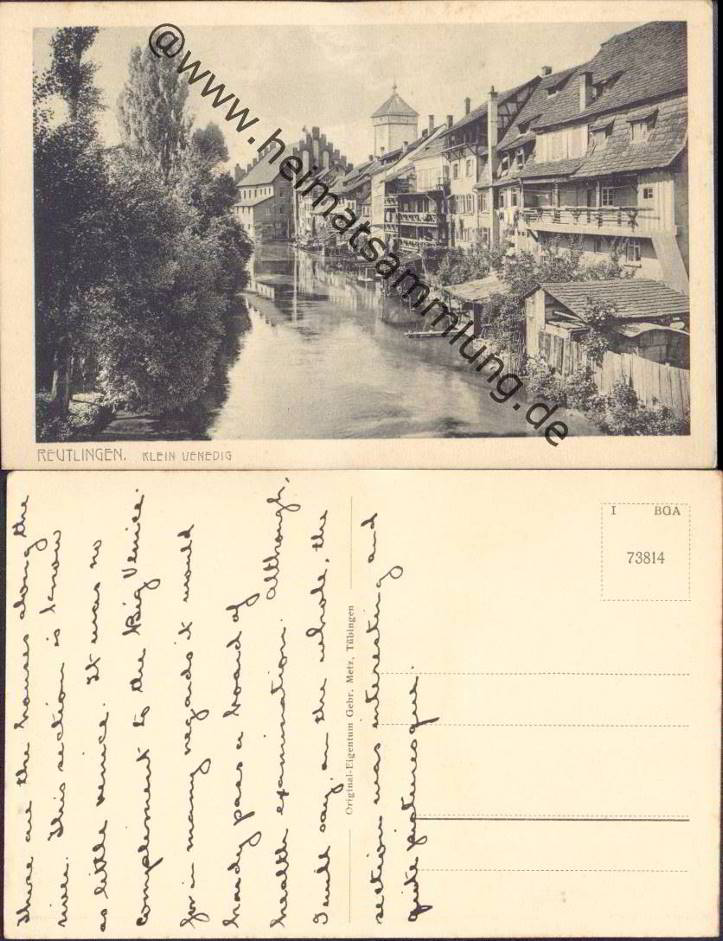 @www.heimatsammlung.de
REUTLINGEN. KLEIN VENEDIG
these are the houses along the
river. This section is know
as little venice. It was no
complement to the Big Venice.
for in many regards it would
hardly pass a board of
health examination. Although,
I will say, on the whole, the
section was interesting and
quite picturesque.
Original-Eigentum Gebr. Metz, Tübingen
I BQA
73814